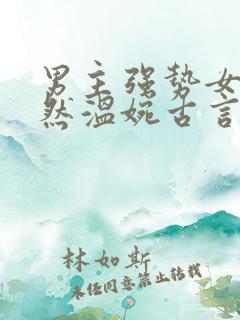 男主强势女
然温婉古言
林如斯
未经同意禁止转载